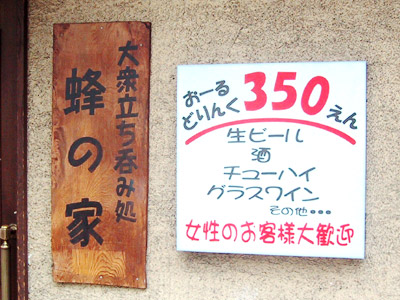 大衆立ち呑み処
蜂の家
おーる
どりんく
350えん
生ビール
酒
チューハイ
グラスワイン
その他・・・
女性のお客様大歓迎